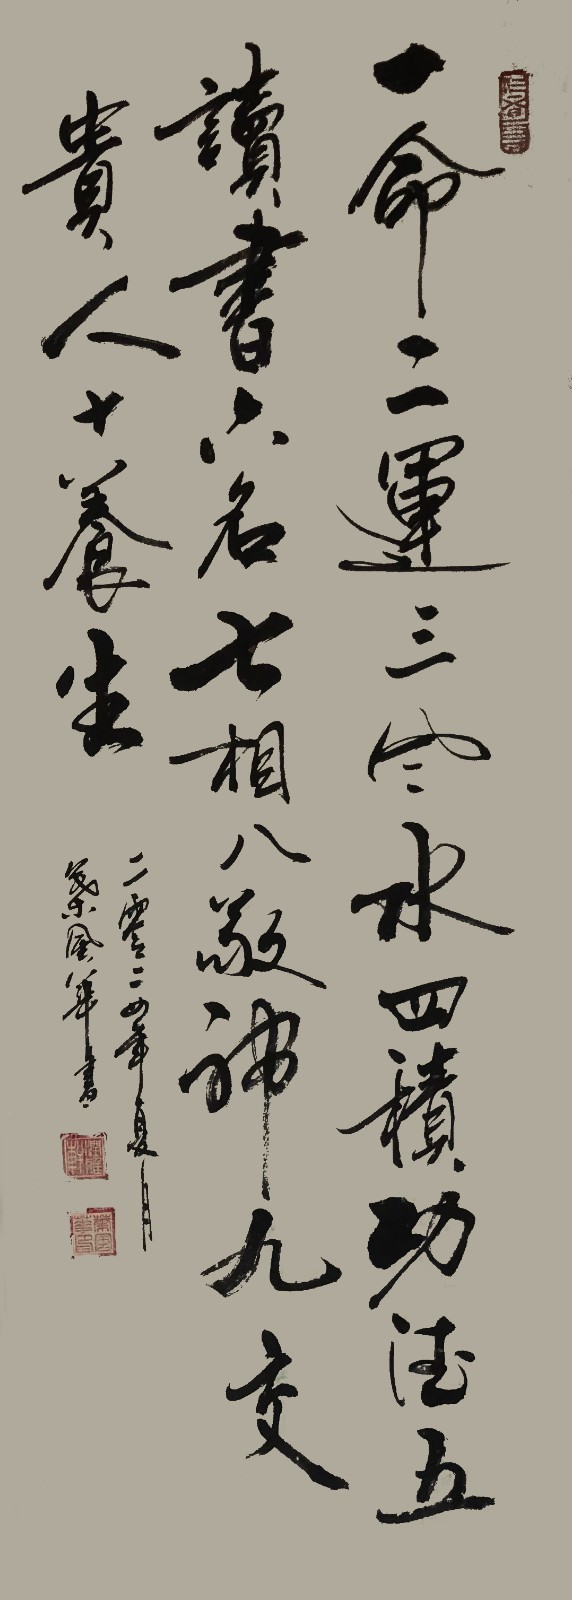 一命二運三风水四積功德五
讀書六名七相八敬神九交
貴人十養生
二零二四年夏月
葉風華書